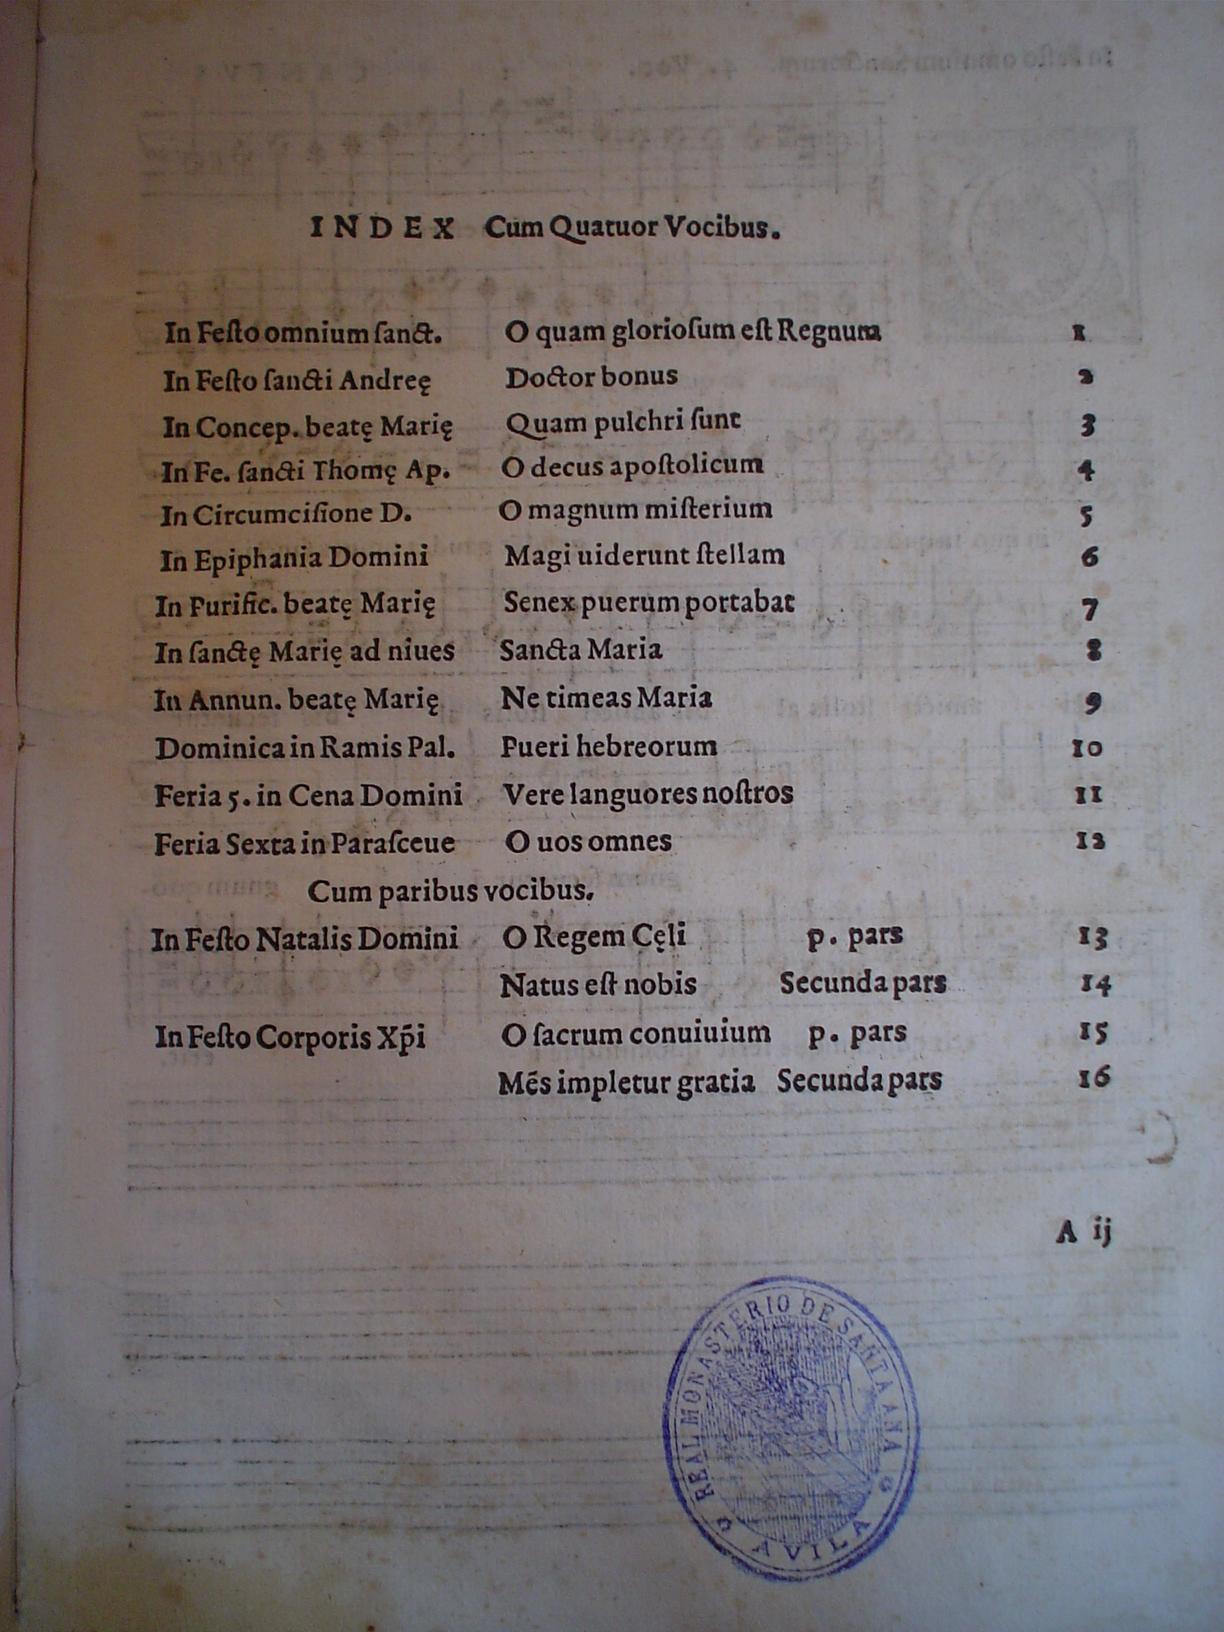 INDEX Cum Quatuor Vocibus.
In Feſto omnium ſanct. O quam glorioſum eſt Regnum 1
In Feſto ſancti Andreę Doctor bonus 2
In Concep. beatę Marię Quam pulchri ſunt 3
In Fe. ſancti Thomę Ap. O decus apoſtolicum 4
In Circumciſione D. O magnum miſterium 5
In Epiphania Domini Magi uiderunt ſtellam 6
In Purific. beatę Marię Senex puerum portabat 7
In ſanctę Marię ad niues Sancta Maria 8
In Annun. beatę Marię Ne timeas Maria 9
Dominica in Ramis Pal. Pueri hebreorum 10
Feria 5. in Cena Domini Vere languores noſtros 11
Feria Sexta in Paraſceue O uos omnes 12
Cum paribus vocibus.
In Feſto Natalis Domini O Regem Cęli p. pars 13
Natus eſt nobis Secunda pars 14
In Feſto Corporis Xp̄i O ſacrum conuiuium p. pars 15
Mēs impletur gratia Secunda pars 16
A ij
REAL MONASTERIO DE SANTA ANA
AVILA